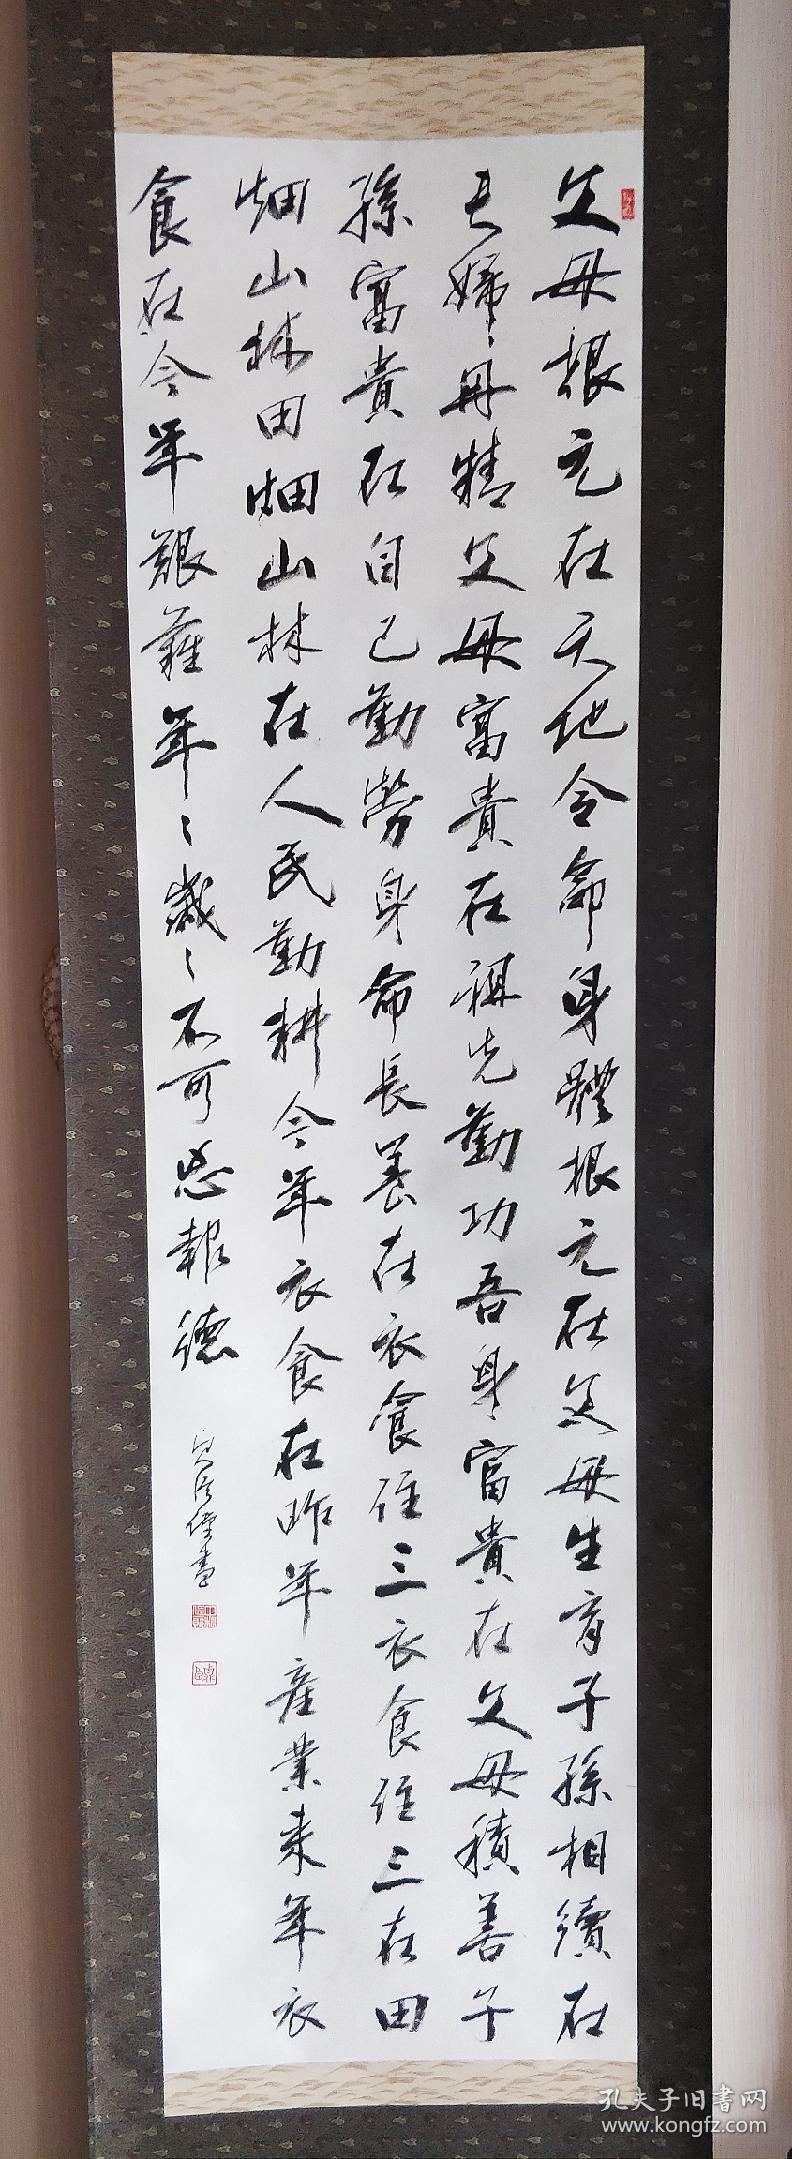 父母根元在天地令命身體根元在父母生育子孫相續在
夫婦丹精父母富貴在祖先勤功吾身富貴在父母積善子
孫富貴在自己勤勞身命長養在衣食住三衣食住三在田
畑山林田畑山林在人民勤耕今年衣食在昨年産業来年衣
食在今年艱難年々歳々不可忘報徳
書
孔夫子旧书网
www.kongfz.com